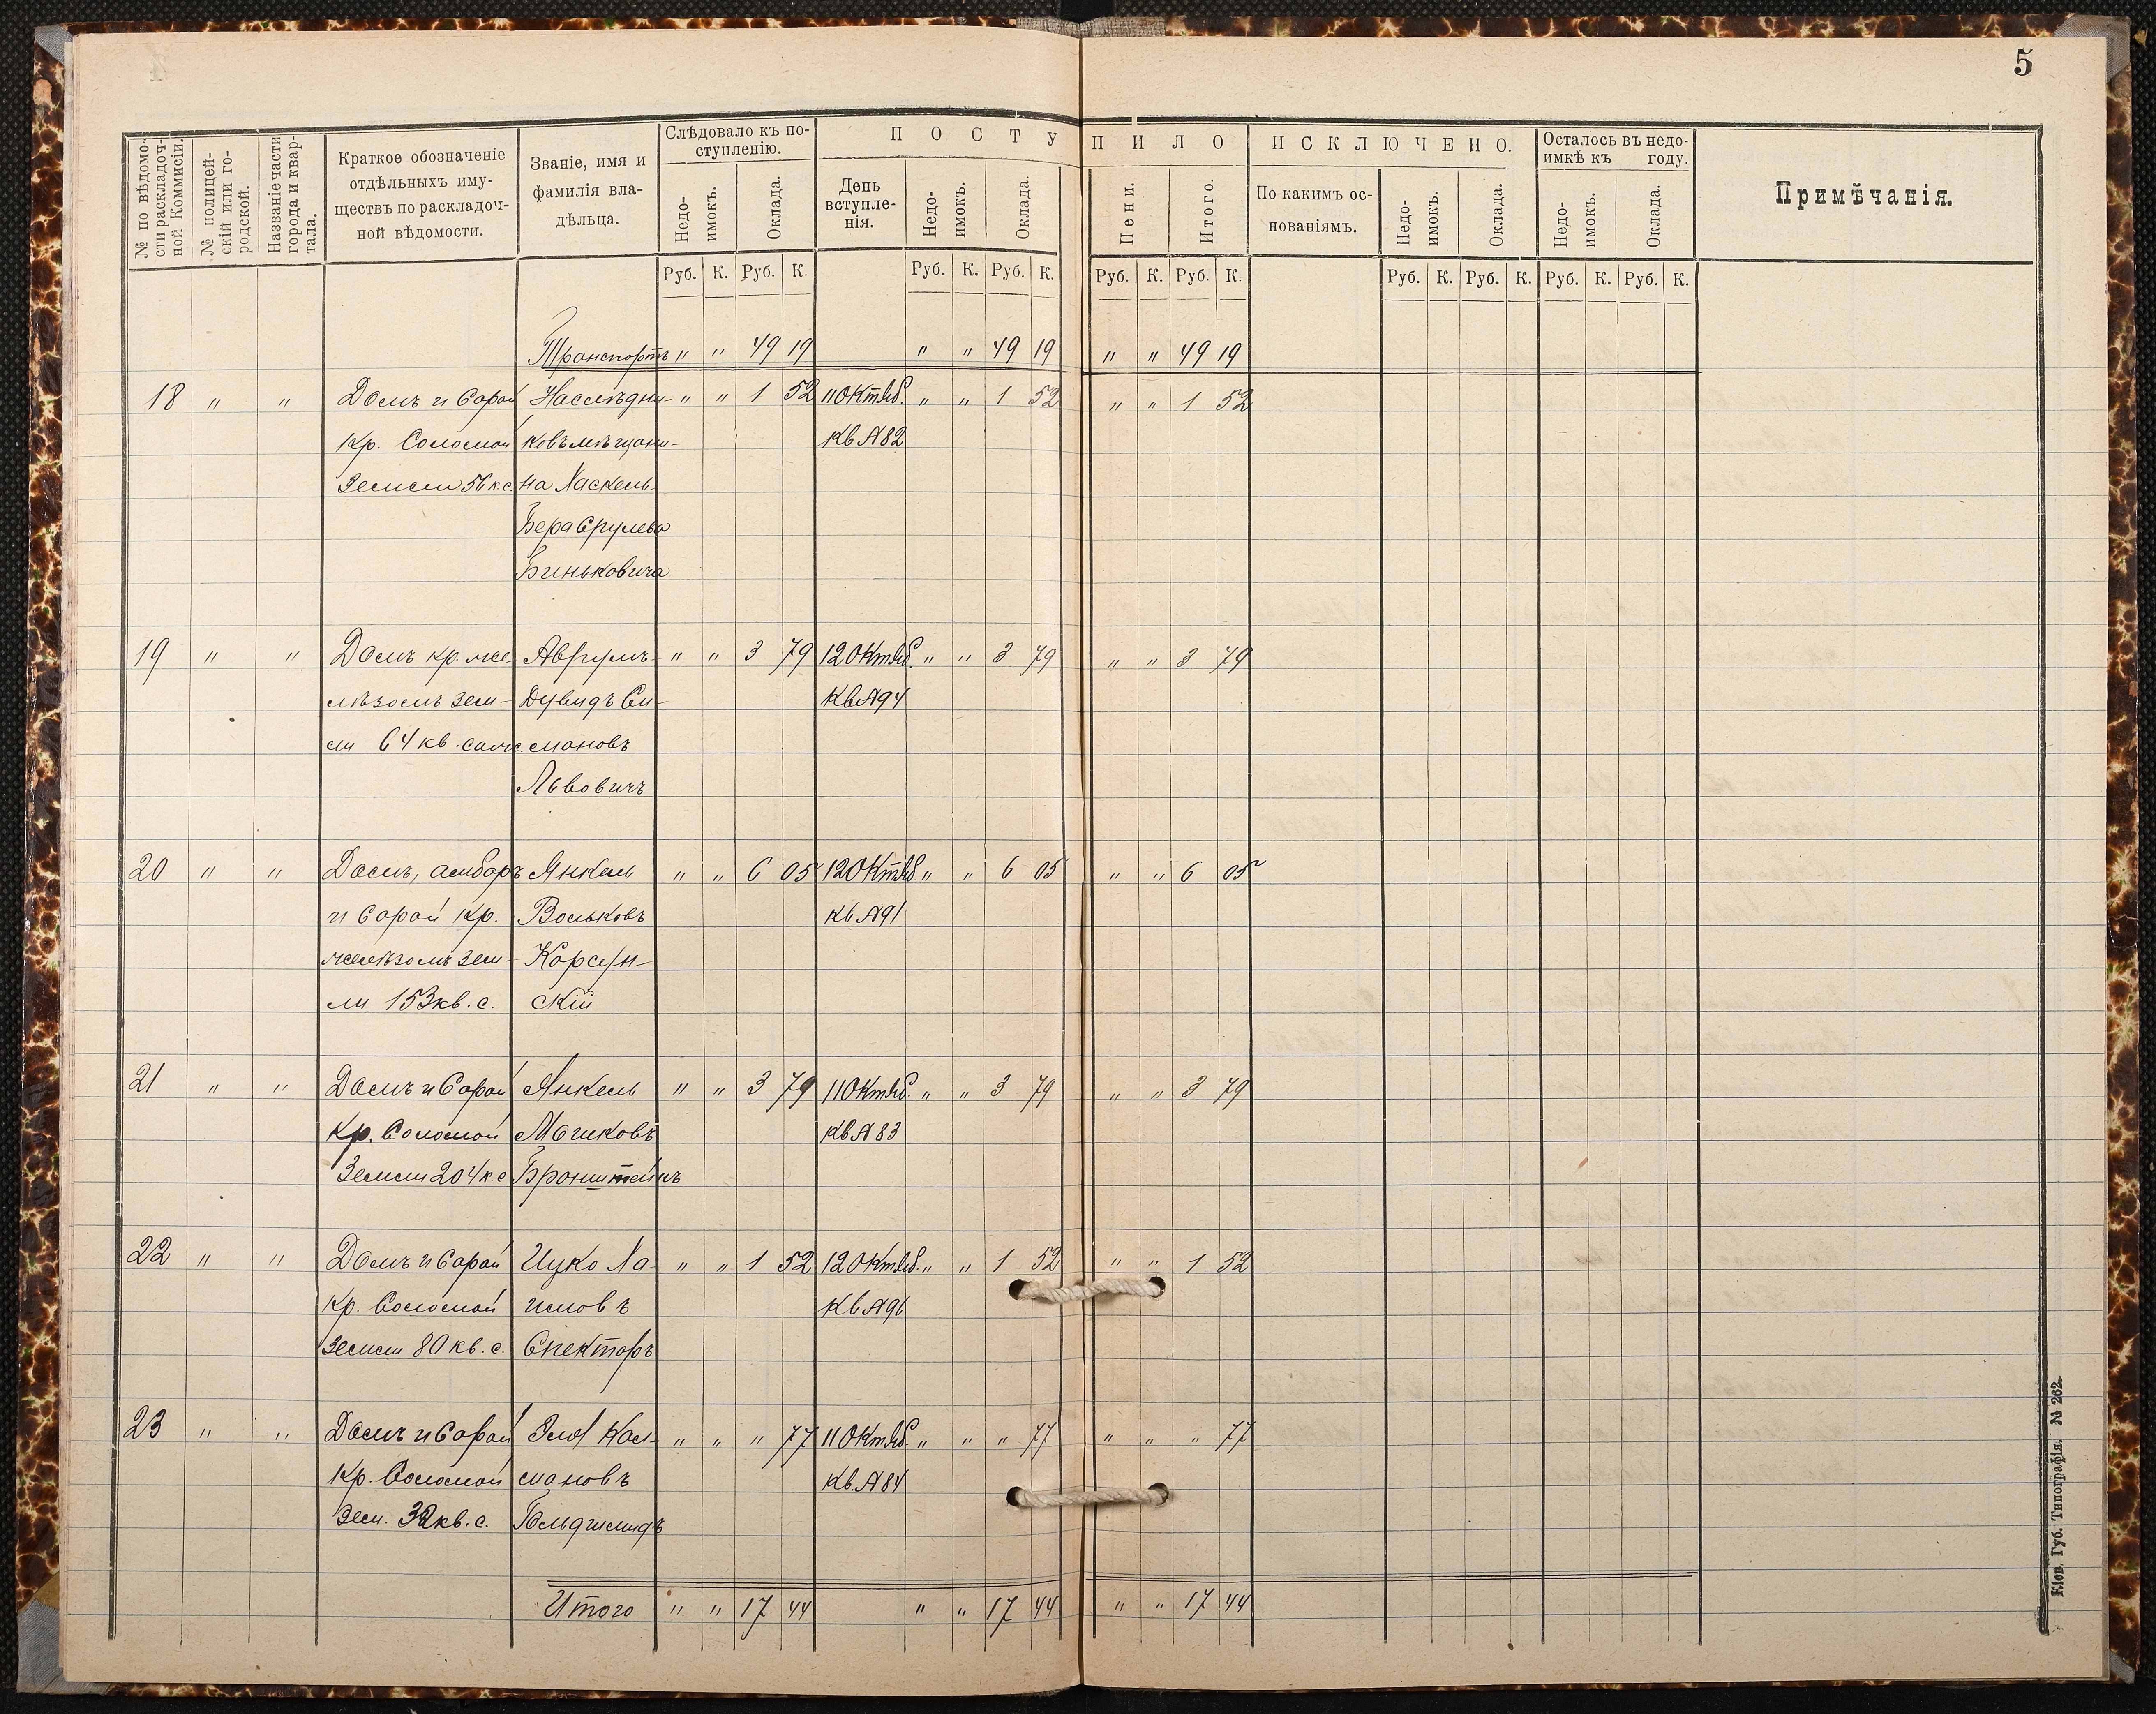 5
№ по вѣдомости раскладочной Коммисіи.
№ полицейскій или городской.
Названіе части города и квартала.
Краткое обозначеніе отдѣльныхъ имуществъ по раскладочной вѣдомости.
Званіе, имя и фамилія владѣльца.
Слѣдовало къ поступленію.
Недоимокъ.
Оклада.
ПОСТУПИЛО
День вступленія.
Недоимокъ.
Оклада.
Пени.
Итого.
ИСКЛЮЧЕНО.
По какимъ основаніямъ.
Недоимокъ.
Оклада.
Осталось въ недоимкѣ къ году.
Недоимокъ.
Оклада.
Примѣчанія.
Руб. К. Руб. К. Руб. К. Руб. К. Руб. К. Руб. К. Руб. К. Руб. К. Руб. К. Руб. К.
Транспортъ " " 49 19 " " 49 19 " " 49 19
18 " " Домъ и Сарай Наслѣдни- " " 1 52 11 Октяб. " " 1 52 " " 1 52
кр. Соломой ковъ мѣщани- Кв № 82
Земли 56 к.с. на Хаскель
Бера Срулева
Биньковича
19 " " Домъ кр. же Аврумъ " " 3 79 12 Октяб. " " 3 79 " " 3 79
лѣзомъ зем- Дувидъ Си- Кв № 94
ли 64 кв. саж. мановъ
Львовичъ
20 " " Домъ, амбаръ Янкель " " 6 05 12 Октяб. " " 6 05 " " 6 05
и Сарай кр. Вольковъ Кв № 91
желѣзомъ зем- Корсун-
ли 153 кв. с. скій
21 " " Домъ и Сарай Янкель " " 3 79 11 Октяб. " " 3 79 " " 3 79
кр. Соломой Мошковъ Кв № 83
Земли 204 к.с Бронштейнъ
22 " " Домъ и Сарай Ицко Ха- " " 1 52 12 Октяб. " " 1 52 " " 1 52
кр. Соломой имовъ Кв № 96
земли 80 кв. с. Спекторъ
23 " " Домъ и Сарай Кал- " " " 77 11 Октяб. " " " 77 " " " 77
кр. Соломой мановъ Кв. № 84
Зем. 32 кв. с. Гольдшмидъ
Итого " " 17 44 " " 17 44 " " 17 44
Кіев. Губ. Типографія. № 262.